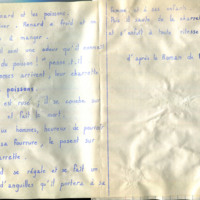 nard et les poissons.
Renard a froid et en
à manger.
une odeur qu'il
de poisson !" pense t-il
arrivent, leur charrette
poissons.
est rusé ; il se couche sur
et fait le mort.
hommes, heureux de pouvoir
sa fourrure, le posent sur
charrette.
se régale et se fait un
d'anguilles qu'il portera à sa
femme, et à ses enfants.
Puis il saute, de la charrette
et s'enfuit à toute vitesse
d'après le Roman de R